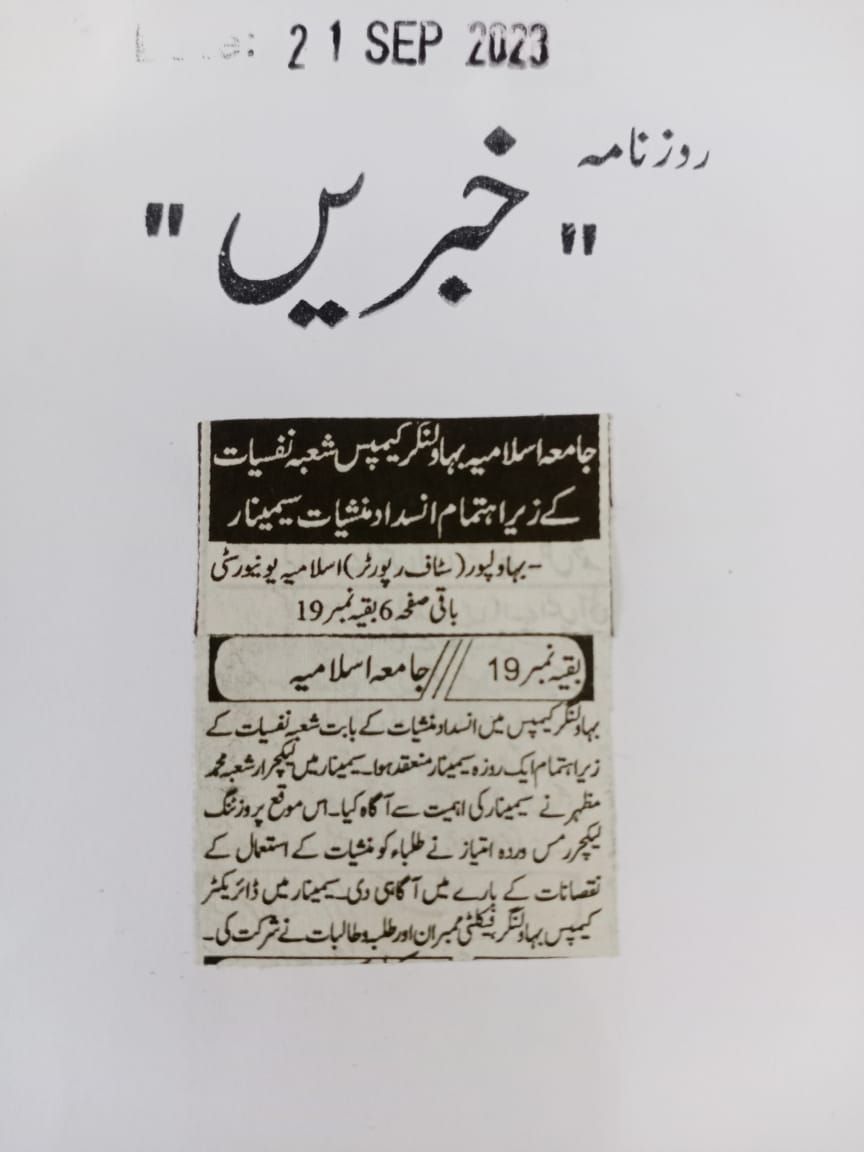 Date: 21 SEP 2023
روزنامہ
"خبریں"
جامعہ اسلامیہ بہاولنگر کیمپس شعبہ نفسیات
کے زیر اہتمام انسداد منشیات سیمینار
-بہاولپور (سٹاف رپورٹر) اسلامیہ یونیورسٹی
باقی صفحہ 6 بقیہ نمبر 19
بقیہ نمبر 19 /// جامعہ اسلامیہ
بہاولنگر کیمپس میں انسداد منشیات کے بابت شعبہ نفسیات کے
زیر اہتمام ایک روزہ سیمینار منعقد ہوا۔ سیمینار میں لیکچرار شعبہ محمد
مظہر نے سیمینار کی اہمیت سے آگاہ کیا۔ اس موقع پر وزٹنگ
لیکچرر مس وردہ امتیاز نے طلباء کو منشیات کے استعمال کے
نقصانات کے بارے میں آگاہی دی۔ سیمینار میں ڈائریکٹر
کیمپس بہاولنگر، فیکلٹی ممبران اور طلبہ و طالبات نے شرکت کی۔